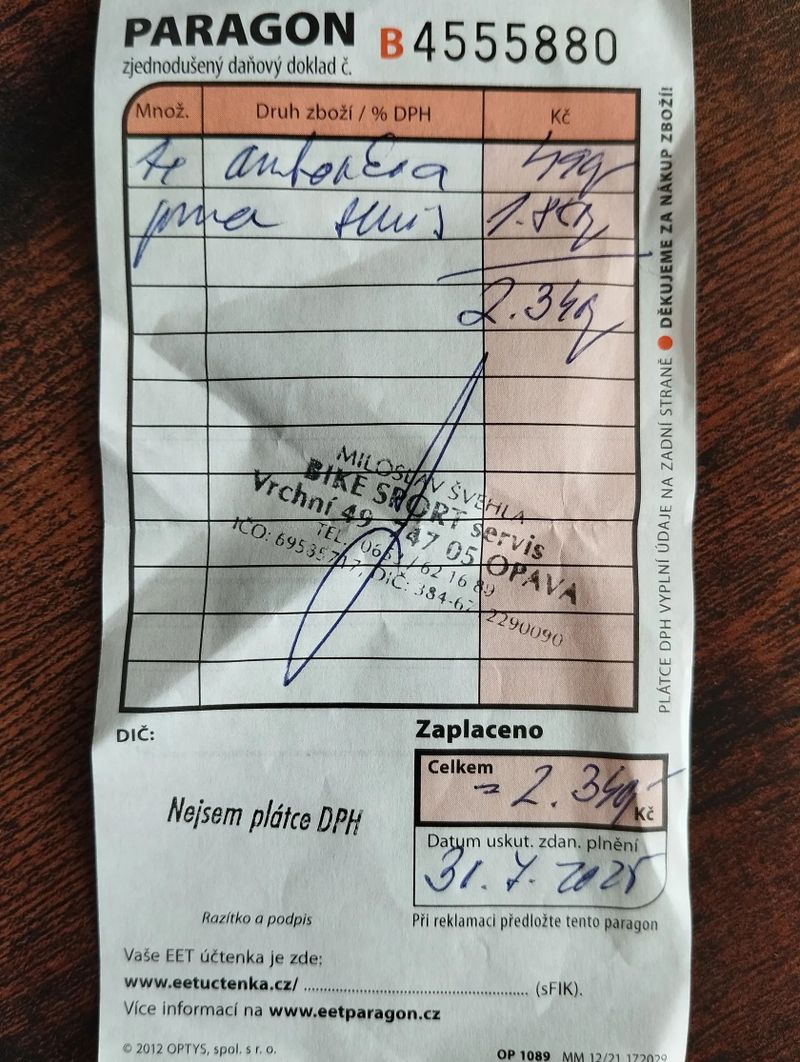 PARAGON B 4555880
zjednodušený daňový doklad č.
Množ. Druh zboží / % DPH Kč
499
1.850
2.349
MILOSLAV ŠVEHLA
BIKE SPORT servis
Vrchní 49 747 05 OPAVA
TEL. 0653 / 62 16 89
IČO: 69535717, DIČ: 384-67 2290090
DIČ:
Zaplaceno
Celkem
= 2.349 Kč
Nejsem plátce DPH
Datum uskut. zdan. plnění
31. 7. 2025
Razítko a podpis
Při reklamaci předložte tento paragon
Vaše EET účtenka je zde:
www.eetuctenka.cz/ (sFIK).
Více informací na www.eetparagon.cz
© 2012 OPTYS, spol. s r. o.
OP 1089 MM 12/21 172029
PLÁTCE DPH VYPLNÍ ÚDAJE NA ZADNÍ STRANĚ ● DĚKUJEME ZA NÁKUP ZBOŽÍ!